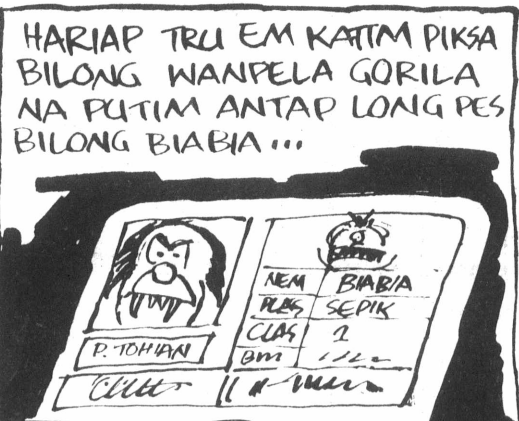 HARIAP TRU EM KATIM PIKSA
BILONG WANPELA GORILA
NA PUTIM ANTAP LONG PES
BILONG BIABIA...
P. TOHIAN
NEM BIABIA
PLES SEPIK
CLAS 1